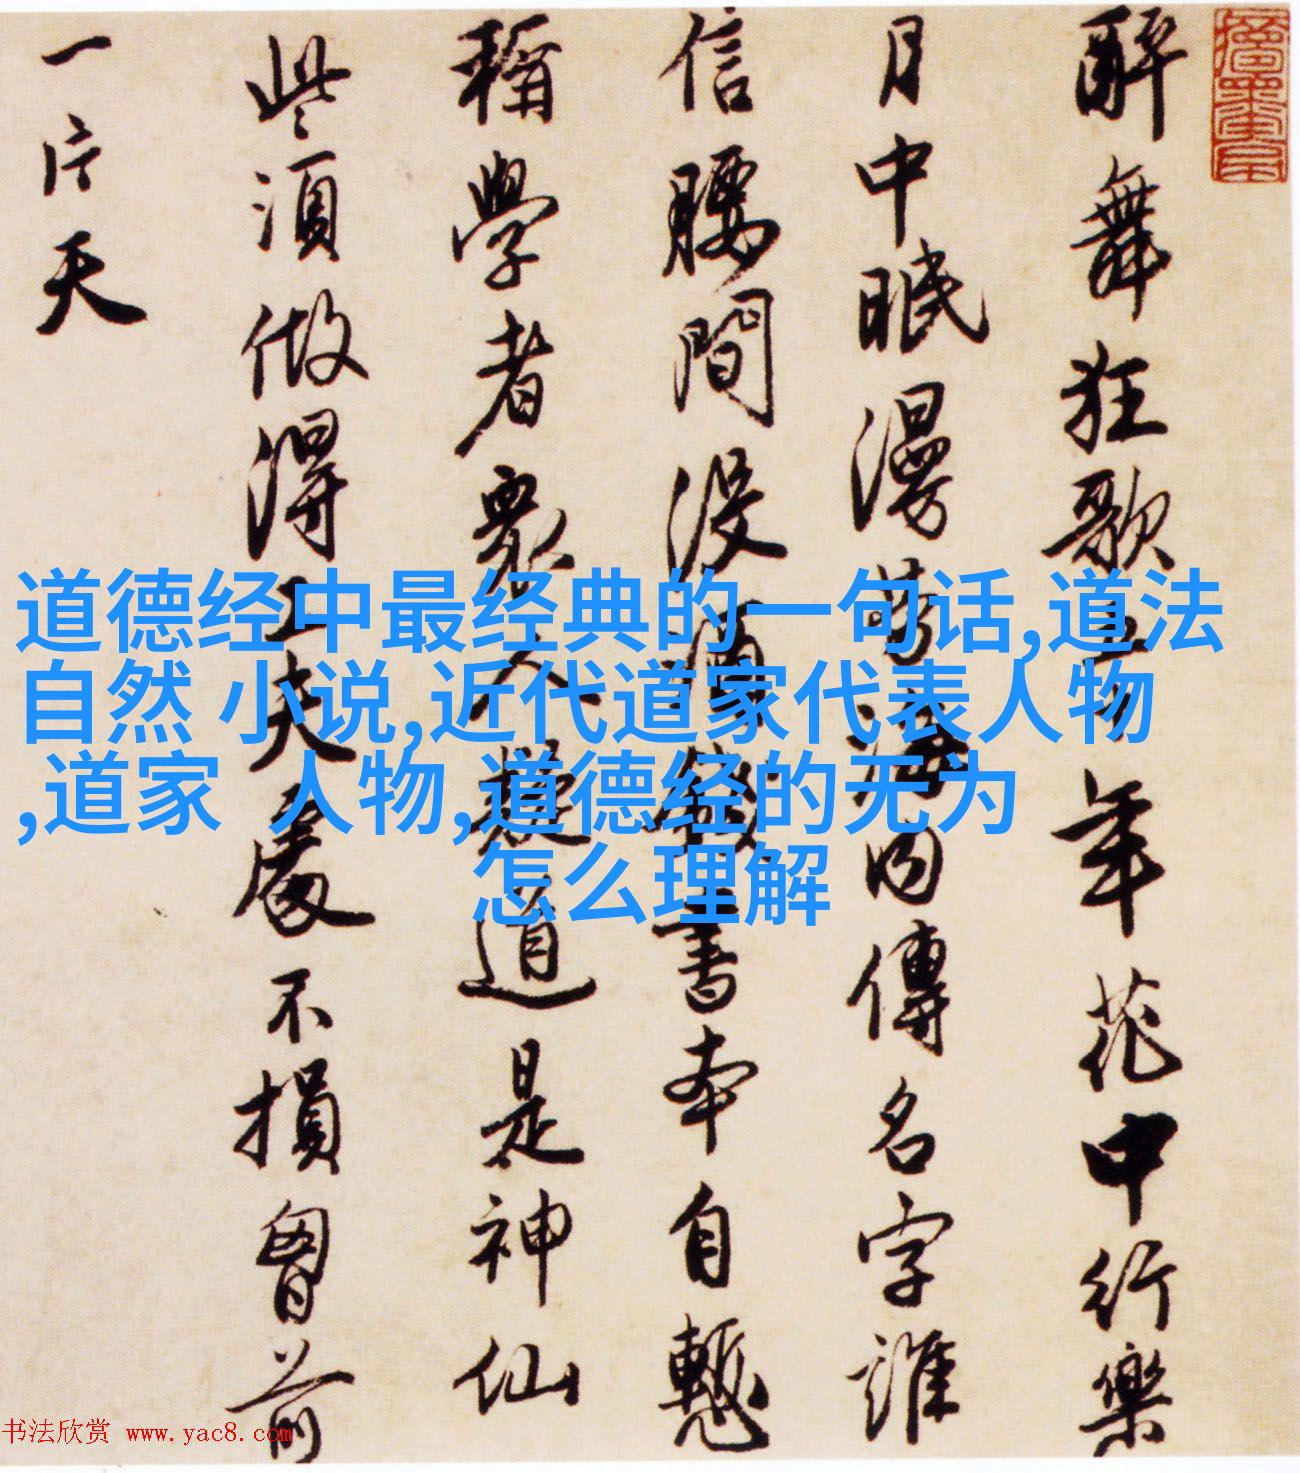 醉舞狂歌五十年花中行樂
月中眠漫勞海内傳名字誰
信腰間沒酒錢書本自慙
稱學者衆人疑道是神仙
些須做得工夫處不損胷前
一片天
道德经中最经典的一句话,道法
自然 小说,近代道家代表人物
,道家 人物,道德经的无为
怎么理解
书法欣赏 www.yac8.com